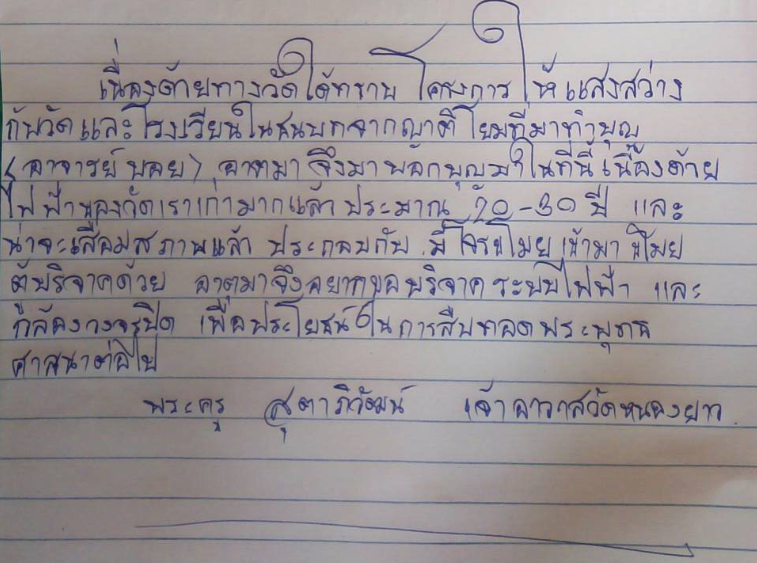 เนื่องด้วยทางวัดได้ทราบ โครงการ ให้แสงสว่าง
กับวัดและโรงเรียนในชนบทจากญาติโยมที่มาทำบุญ
อาจารย์ บอย อาตมา จึงมาบอกบุญมาในที่นี้ เนื่องด้วย
ไฟฟ้าของวัดเราเก่ามากแล้ว ประมาณ 20-30 ปี และ
น่าจะเสื่อมสภาพแล้ว ประกอบกับ มีโจรขโมย เข้ามา ขโมย
ตู้บริจาคด้วย อาตมาจึงอยากขอบริจาค ระบบไฟฟ้า และ
กล้องวงจรปิด เพื่อประโยชน์ในการสืบทอดพระพุทธ
ศาสนาต่อไป
พระครู สุตาภิวัฒน์ เจ้าอาวาสวัดหนองยาว